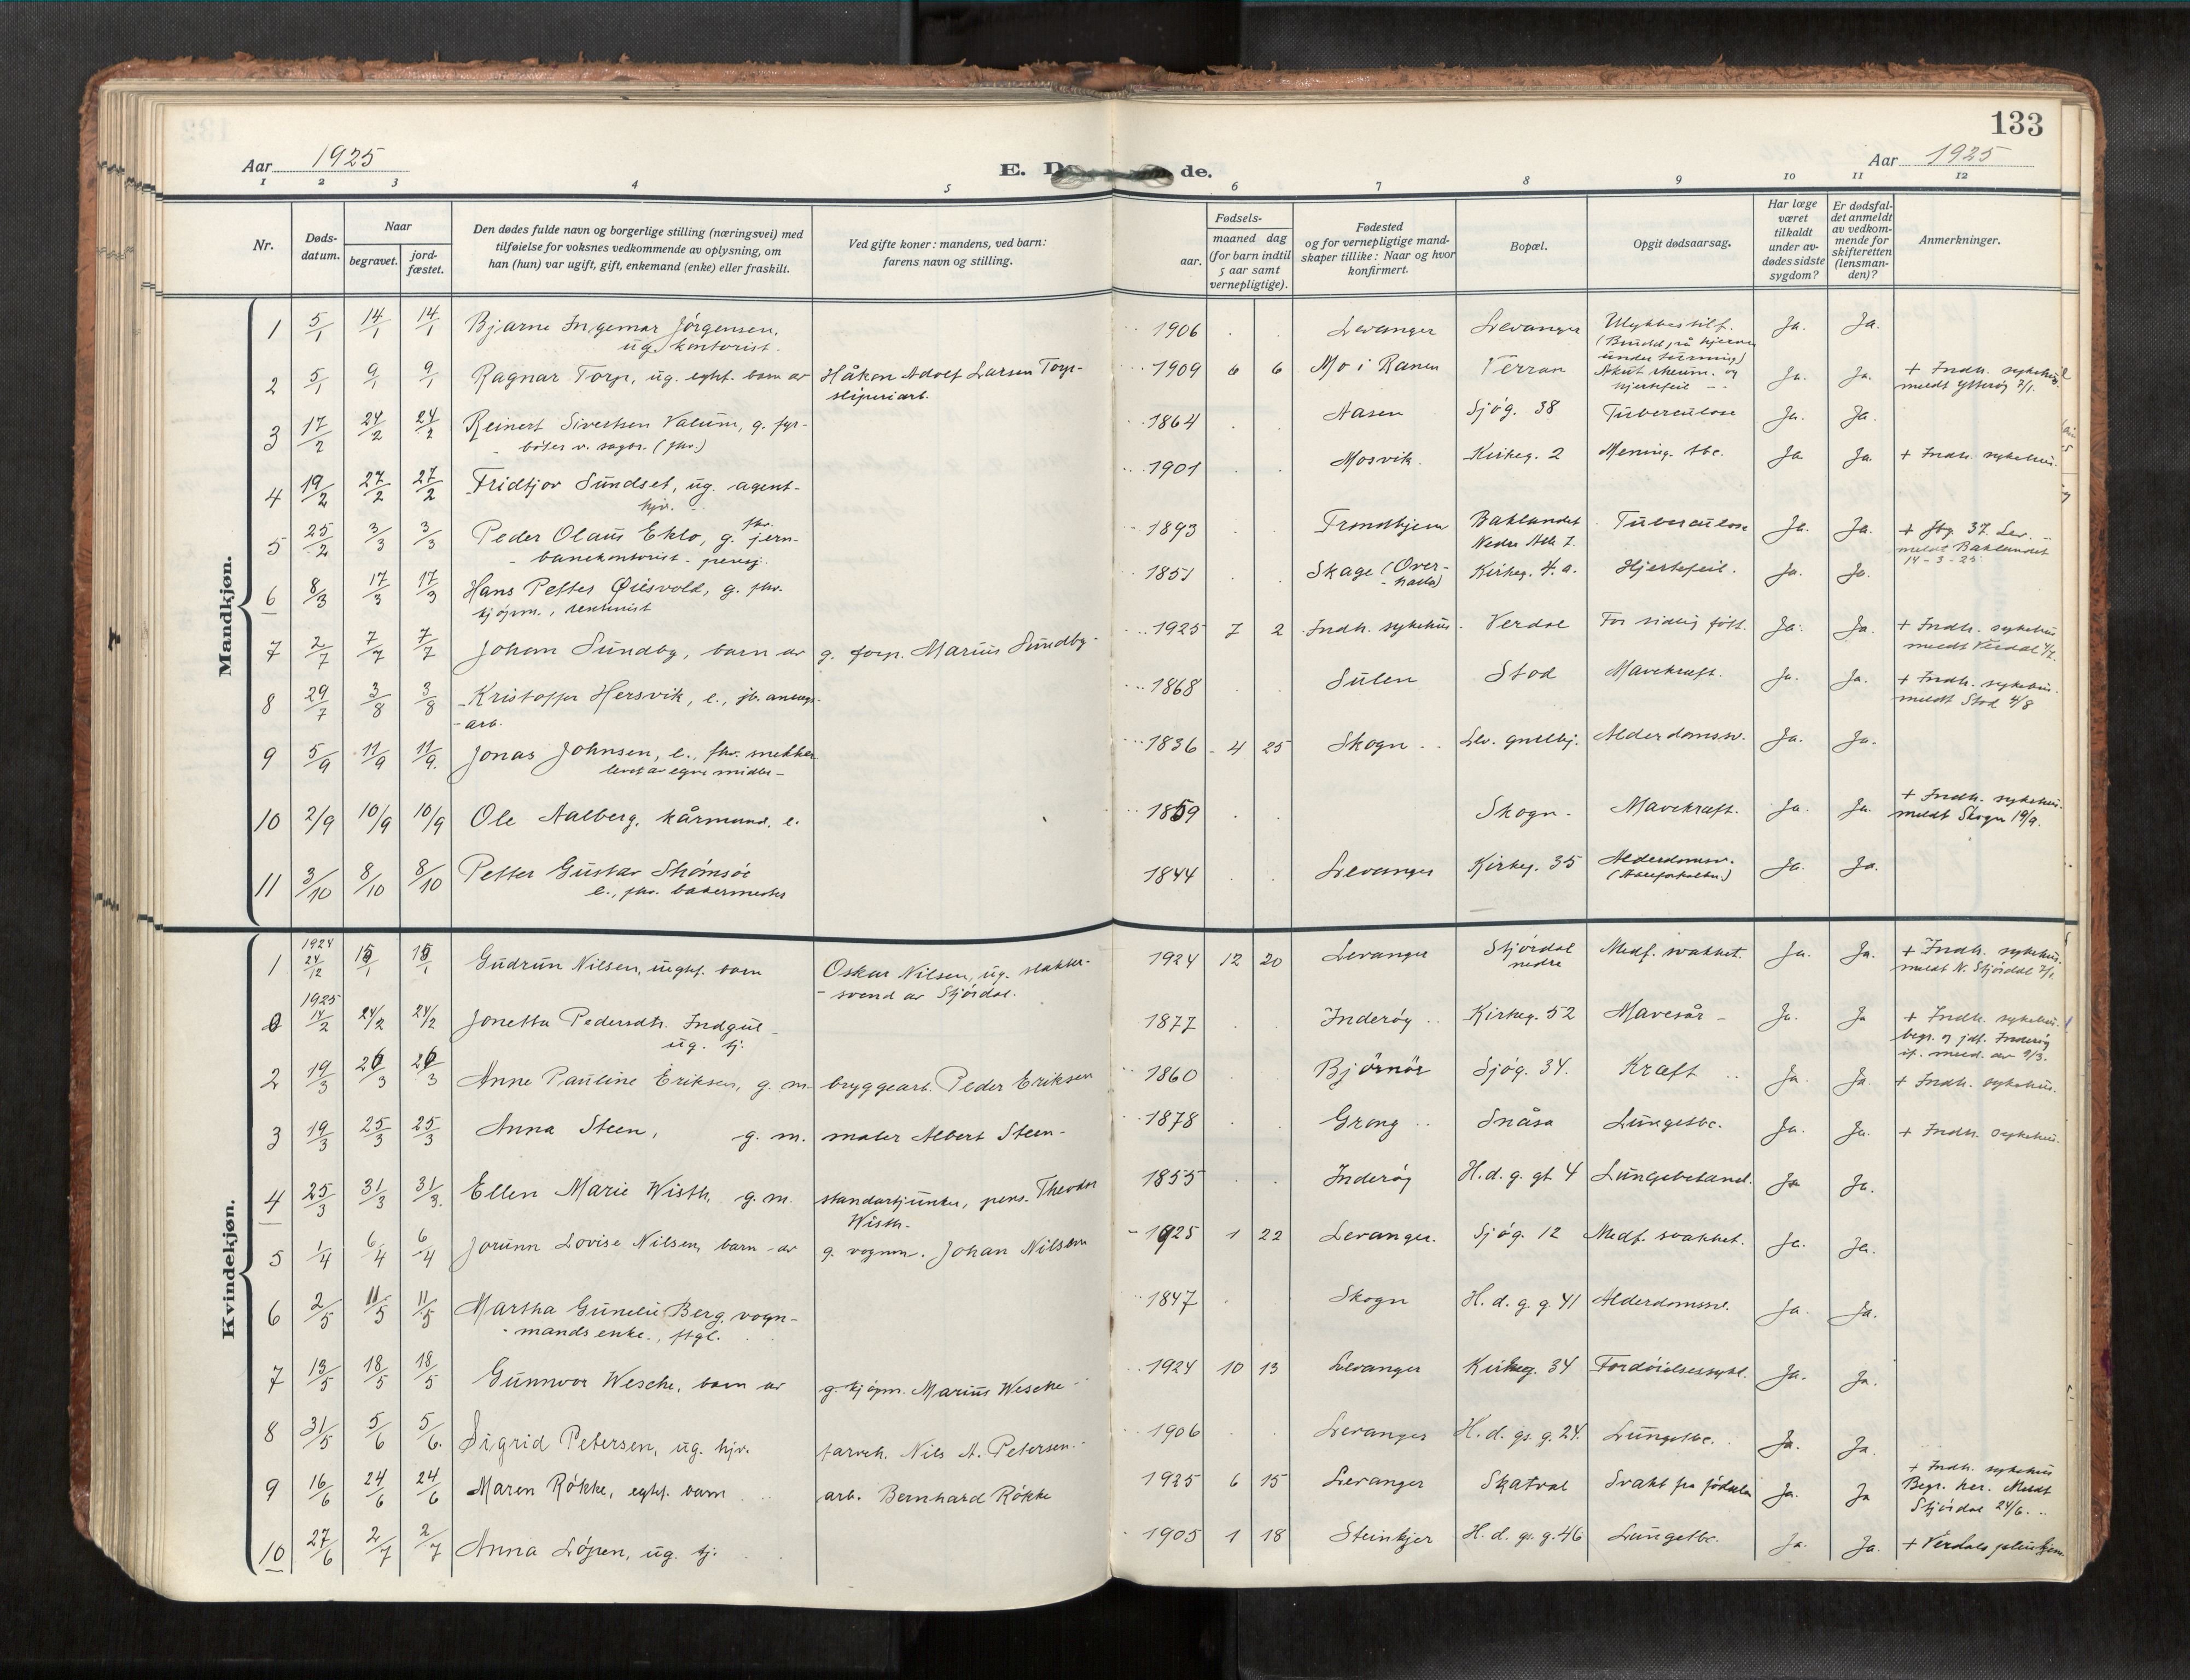 133
Aar 1925
E. D de.
Aar 1925
1 2 3 4 5 6 7 8 9 10 11 12
Nr.
Døds-
datum.
Naar
begravet.
jord-
fæstet.
Den dødes fulde navn og borgerlige stilling (næringsvei) med
tilføielse for voksnes vedkommende av oplysning, om
han (hun) var ugift, gift, enkemand (enke) eller fraskilt.
Ved gifte koner: mandens, ved barn:
farens navn og stilling.
Fødsels-
aar.
maaned dag
(for barn indtil
5 aar samt
vernepligtige).
Fødested
og for vernepligtige mand-
skaper tillike: Naar og hvor
konfirmert.
Bopæl.
Opgit dødsaarsag.
Har læge
været
tilkaldt
under av-
dødes sidste
sygdom?
Er dødsfal-
det anmeldt
av vedkom-
mende for
skifteretten
(lensman-
den)?
Anmerkninger.
Mandkjøn.
1 5/1 14/1 14/1 Bjarne Ingemar Jörgensen, 1906 Levanger Levanger Ulykkestilf. Ja. Ja.
ug. kontorist.
under turning)
2 5/1 9/1 9/1 Ragnar Torp, ug. egtf. barn av Håkon Adolf Larsen Torp- 1909 6 6 Mo i Ranen Verran Akut rheum. og Ja. Ja. + Indh. sykehus
sliperiarb. hjertefeil meldt Ytterøy 7/1.
3 17/2 24/2 24/2 Reinert Sivertsen Valum, g. fyr- 1864 Aasen Sjög. 38 Tuberculose Ja. Ja.
böter v. sagbr. (fhv.)
4 19/2 27/2 27/2 Fridtjov Sundset, ug. agent- 1901 Mosvik. Kirkeg. 2 Mening. tbc. Ja Ja. + Indh. sykehus.
5 25/2 3/3 3/3 Peder Olaus Eklo, g. fhv. jern- 1893 Trondhjem Baklandet Tuberculose Ja. Ja. + 37. Lev.
banekontorist - pensj. Nedre 7. meldt Baklandet
14-3-25
6 8/3 17/3 17/3 Hans Petter Øiesvold, g. fhv. 1851 Skage (Over- Kirkeg. 4. a. Hjertefeil. Ja. Ja.
kjøpm., rentenist halla)
7 2/7 7/7 7/7 Johan Sundby, barn av g. forp. Marius Sundby- 1925 7 2 Indh. sykehus. Verdal For tidlig født. Ja. Ja. + Indh. sykehus
meldt Verdal 4/7.
8 29/7 3/8 3/8 Kristoffer Hersvik, e., jb. anlegs- 1868 Sulen Stod Mavekræft. Ja. Ja. + Indh. sykehus.
- arb. meldt Stod 4/8
9 5/9 11/9 11/9. Jonas Johnsen, e., fhv. snekker 1836 4 25 Skogn Lev. gmlhj. Alderdomssv. Ja. Ja.
levet av egne midler -
10 2/9 10/9 10/9 Ole Aalberg, kårmand, e. 1859 Skogn. Mavekræft. Ja. Ja. + Indh. sykehus.
meldt Skogn 19/9.
11 3/10 8/10 8/10 Petter Gustav Strömsöe 1844 Levanger Kirkeg. 35 Alderdomssv. Ja. Ja.
e., fhv. bakermester (Aareforkalkn.)
Kvindekjøn.
1 1924 24/12 Gudrun Nilsen, uegtf. barn Oskar Nilsen, ug. slakter- 1924 12 20 Levanger Stjördal Medf. svakhet. Ja. Ja. + Indh. sykehus.
- svend av Stjördal. nedre meldt N. Stjördal 7/1.
0 1925 14/2 24/2 24/2 Jonetta Pedersdtr. Indgul 1877 Inderøy Kirkeg. 52 Mavesår - Ja. Ja + Indh. sykehus.
ug. tj. begr. og jdf. Inderøy
if. meld. av 9/3.
2 19/3 26/3 26/3 Anne Pauline Eriksen, g. m. bryggearb. Peder Eriksen 1860 Björnör Sjög. 34. Kræft Ja. Ja. + Indh. sykehus.
3 19/3 25/3 25/3 Anna Steen, g. m. maler Albert Steen- 1878 Grong Snåsa Lungetbc. Ja. Ja. + Indh. sykehus.
4 25/3 31/3 31/3. Ellen Marie Wisth g. m. standartjunker, pens. Theodor 1855 Inderøy H. d. g. gt. 4 Lungebetænd. Ja Ja.
Wisth-
5 1/4 6/4 6/4 Jorunn Lovise Nilsen, barn av g. vognm. Johan Nilsen 1925 1 22 Levanger. Sjög. 12 Medf. svakhet. Ja. Ja.
6 2/5 11/5 11/5 Martha Gunelie Berg, vogn- 1847 Skogn H. d. g. g. 41 Alderdomssv. Ja. Ja.
- mands enke., ftgl.
7 13/5 18/5 18/5 Gunnvor Wesche, barn av g. kjöpm. Marius Wesche 1924 10 13 Levanger Kirkeg. 34 Fordöielsessykd. Ja. Ja.
8 31/5 5/6 5/6. Sigrid Petersen, ug. hjv. farveh. Nils A. Petersen. 1906 Levanger H. d. gs. g. 24. Lungetbc. Ja. Ja.
9 16/6 24/6 24/6 Maren Rökke, egtf. barn arb. Bernhard Rökke 1925 6 15 Levanger Skatval Svakt fra födselen Ja. Ja + Indh. sykehus
Begr. her. Meldt
Stjördal 24/6.
10 27/6 2/7 2/7 Anna Løpen, ug. tj. 1905 1 18 Steinkjer H. d. gs. g. 46 Lungetbc. Ja. Ja. + Verdals pleiehjem.